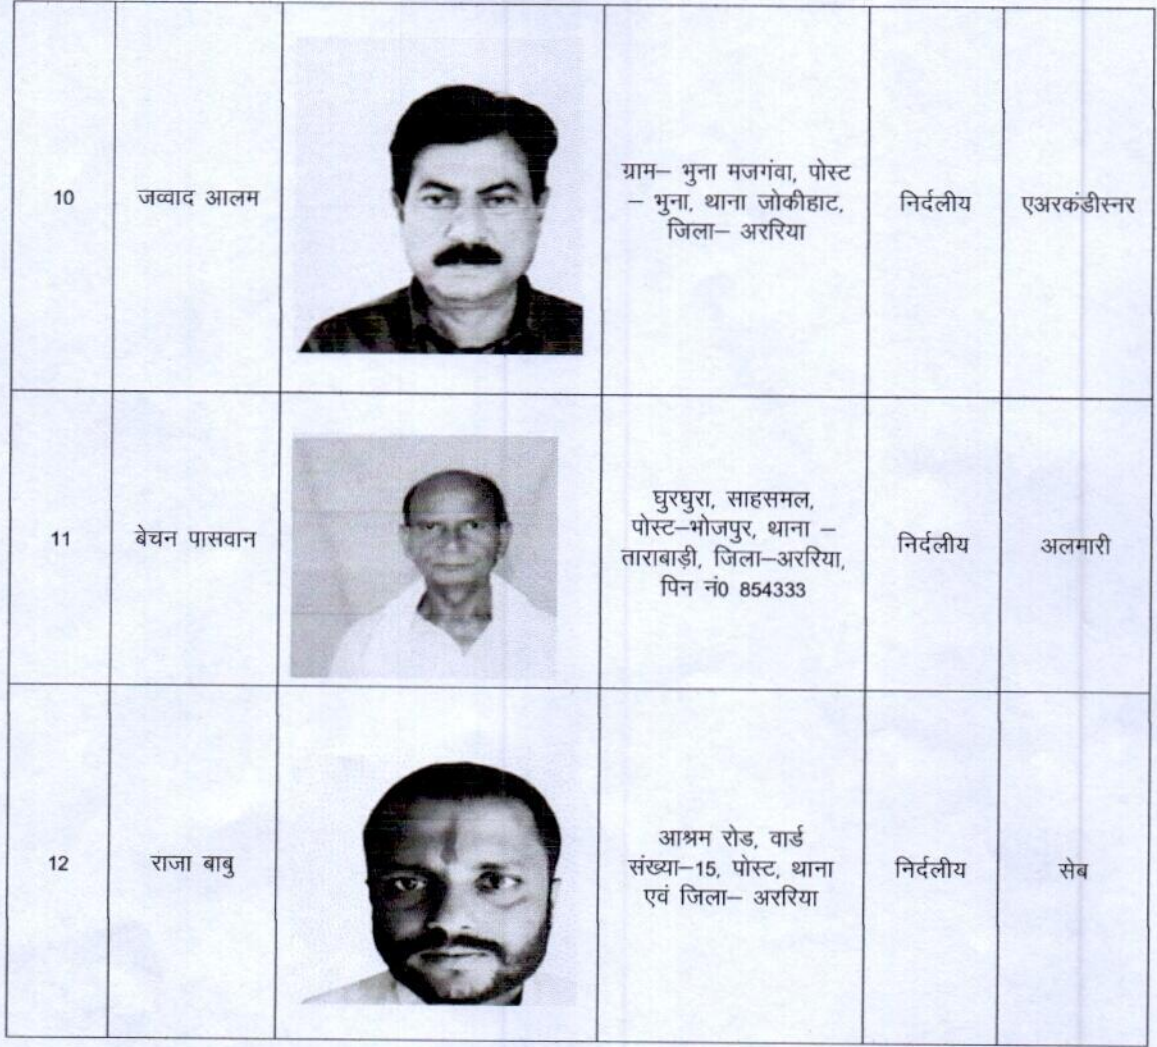 10
जव्वाद आलम
ग्राम– भुना मजगंवा, पोस्ट
– भुना, थाना जोकीहाट,
जिला– अररिया
निर्दलीय
एअरकंडीस्नर
11
बेचन पासवान
घुरघुरा, साहसमल,
पोस्ट–भोजपुर, थाना –
ताराबाड़ी, जिला–अररिया,
पिन नं0 854333
निर्दलीय
अलमारी
12
राजा बाबु
आश्रम रोड, वार्ड
संख्या–15, पोस्ट, थाना
एवं जिला– अररिया
निर्दलीय
सेब